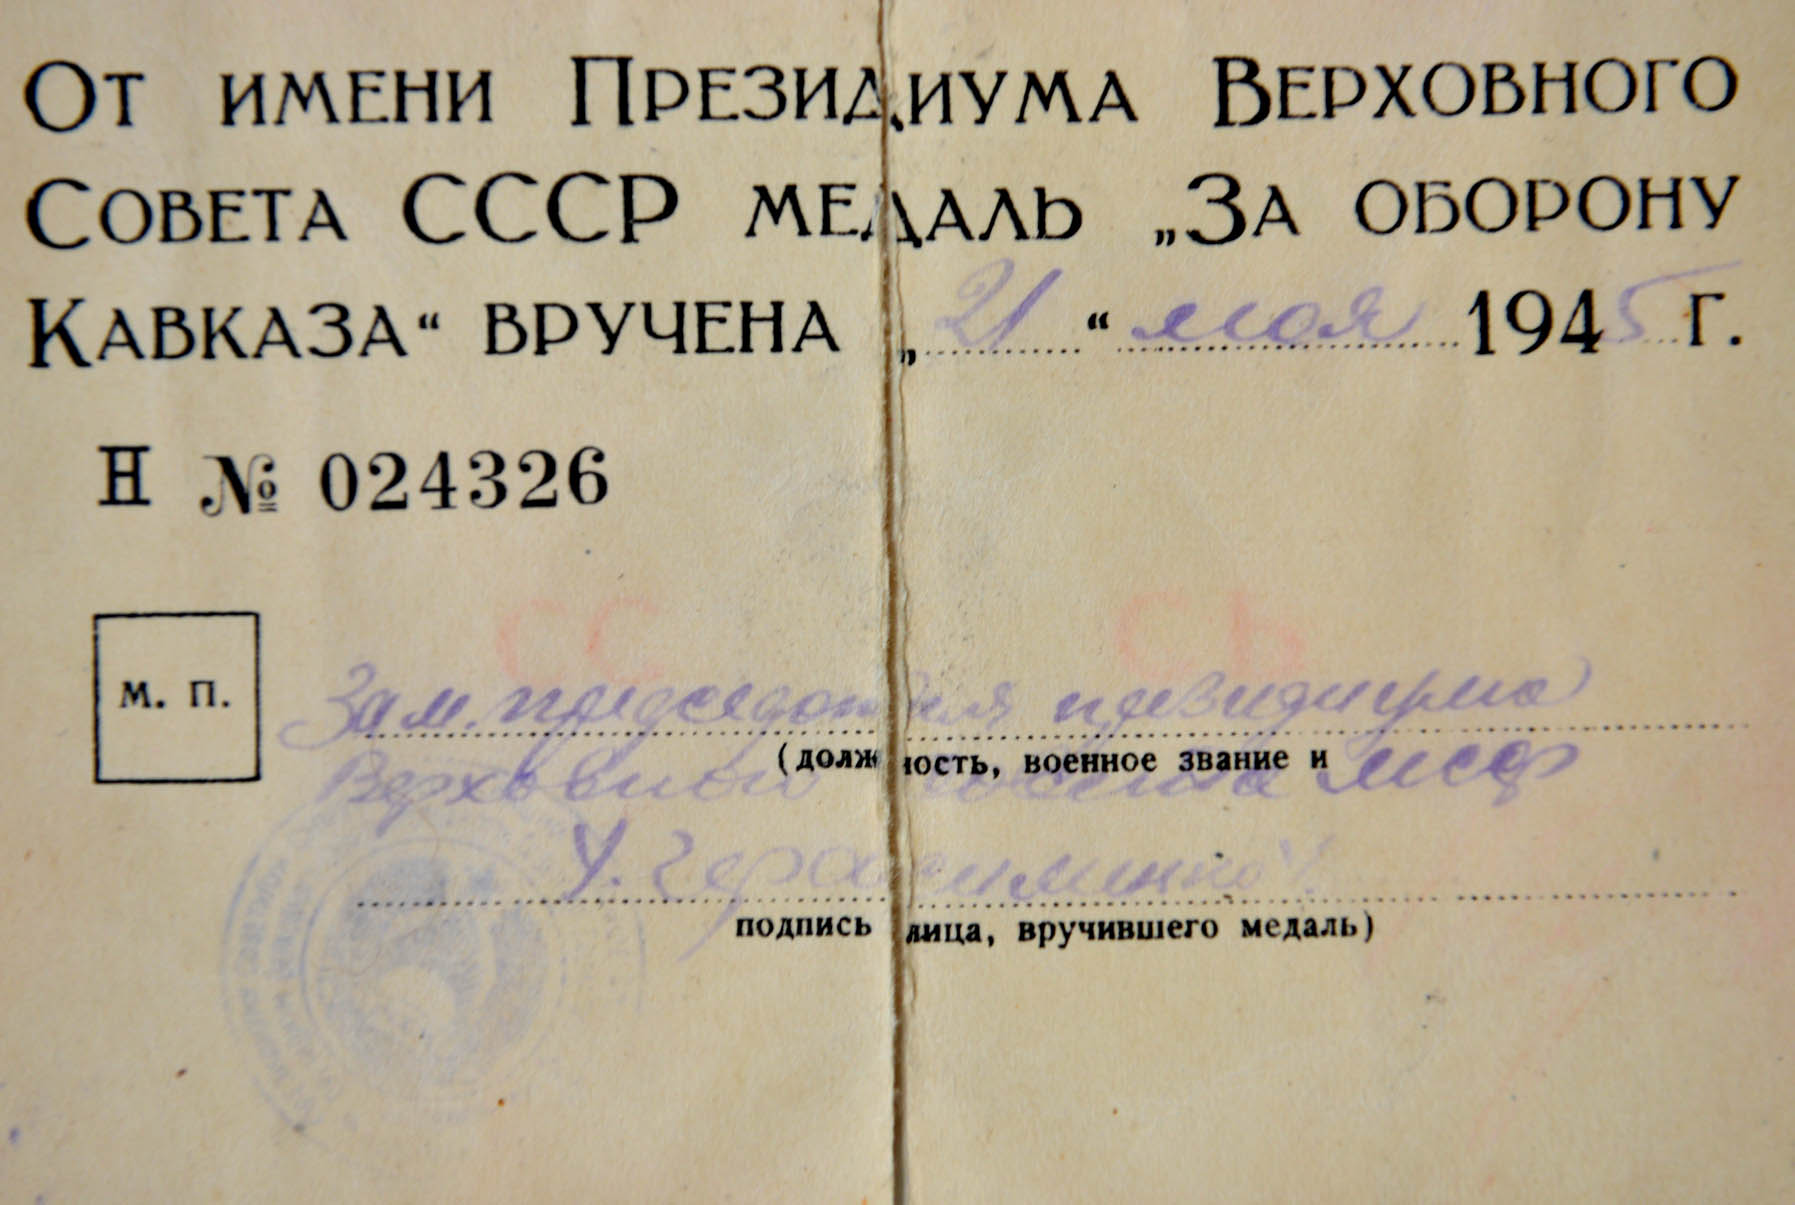 От имени Президиума Верховного
Совета СССР медаль „За оборону
Кавказа“ вручена „21“ мая 1945 г.
Н № 024326
М. П.
Зам. председателя президиума
(должность, военное звание и
Верховного Совета
подпись лица, вручившего медаль)